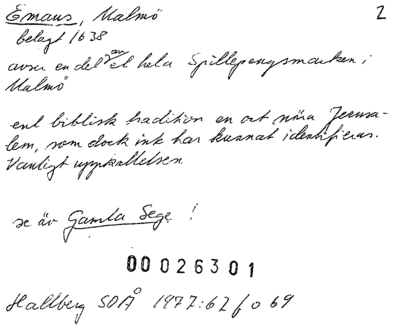 Emaus, Malmö 2
belagt 1638
avser en del av el hela Spillepengsmarken i
Malmö
enl biblisk tradition en ort nära Jerusa-
lem, som dock ink har kunnat identifieras.
Vanligt uppkallelsen
se äv Gamla Sege !
00026301
Hallberg SOÅ 1977:62 f o 69